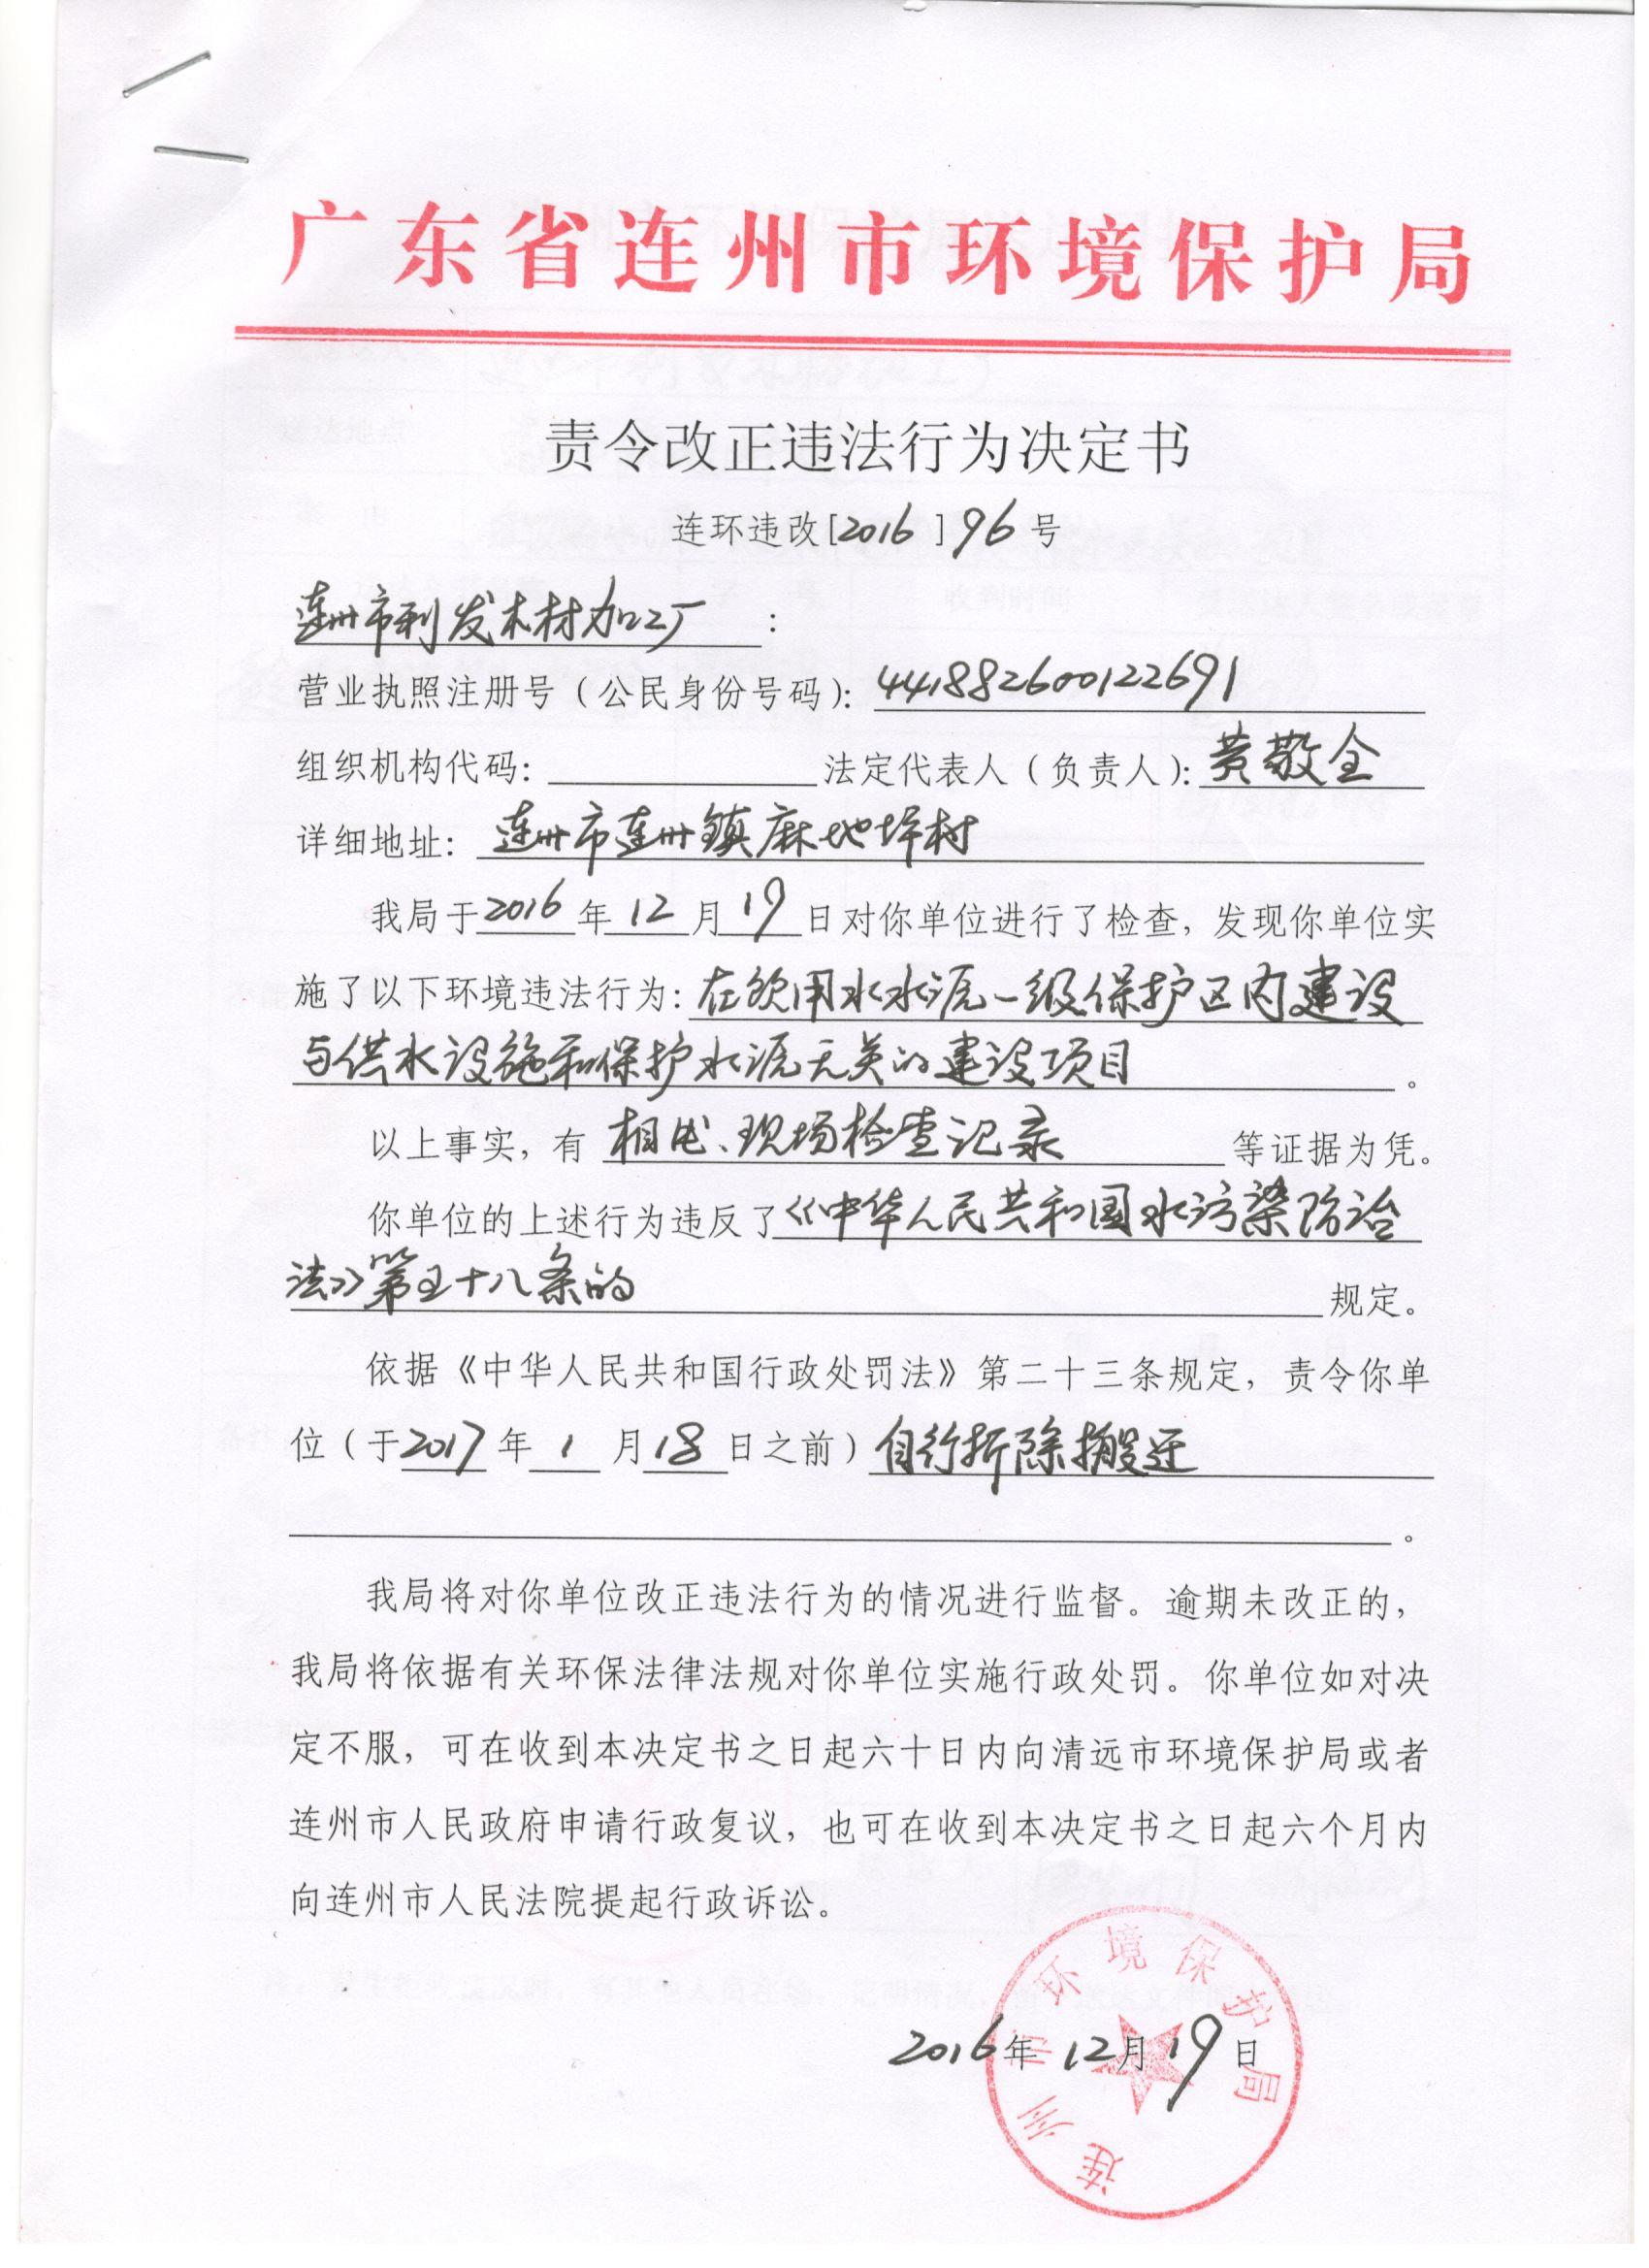 广东省连州市环境保护局
责令改正违法行为决定书
连环违改[2016]96号
连州市利发木材加工厂：
营业执照注册号（公民身份号码）：441882600122691
组织机构代码：法定代表人（负责人）：黄敬全
详细地址：连州市连州镇麻地坪村
我局于2016年12月19日对你单位进行了检查，发现你单位实
施了以下环境违法行为：在饮用水水源一级保护区内建设
与供水设施和保护水源无关的建设项目。
以上事实，有相片、现场检查记录等证据为凭。
你单位的上述行为违反了《中华人民共和国水污染防治
法》第五十八条的规定。
依据《中华人民共和国行政处罚法》第二十三条规定，责令你单
位（于2017年1月18日之前）自行拆除搬迁
。
我局将对你单位改正违法行为的情况进行监督。逾期未改正的，
我局将依据有关环保法律法规对你单位实施行政处罚。你单位如对决
定不服，可在收到本决定书之日起六十日内向清远市环境保护局或者
连州市人民政府申请行政复议，也可在收到本决定书之日起六个月内
向连州市人民法院提起行政诉讼。
连州市环境保护局
2016年12月19日